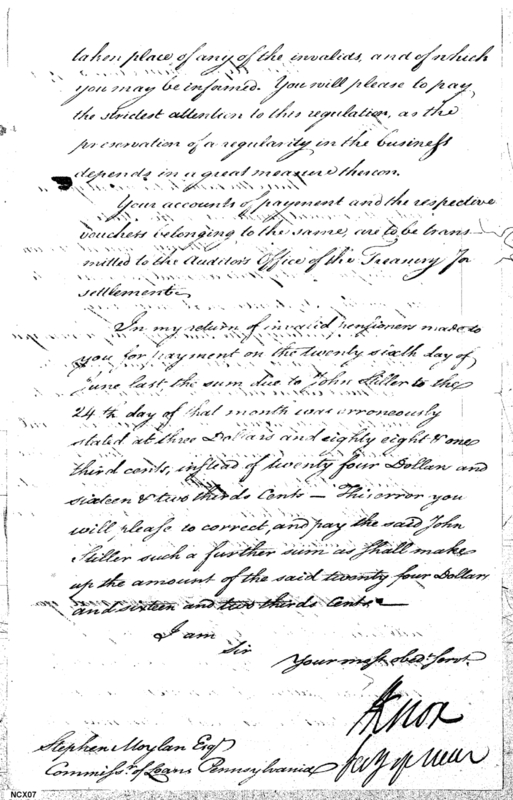 taken place of any of the invalids, and of which
you may be informed. You will please to pay
the strictest attention to this regulation, as the
preservation of a regularity in the business
depends in a great measure thereon.
Your accounts of payment and the respective
vouchers belonging to the same, are to be trans-
mitted to the Auditor's Office of the Treasury for
settlement.
In my return of invalid pensioners made to
you for payment on the twenty sixth day of
June last the sum due to John Stiller to the
24th day of that month was erroneously
stated at three Dollars and eighty eight & one
third cents, instead of twenty four Dollars and
sixteen & two thirds Cents — This error you
will please to correct, and pay the said John
Stiller such a further sum as shall make
up the amount of the said twenty four Dollars
and sixteen and two thirds Cents —
I am
Sir
Your most obedt servt.
HKnox
Secy of War
Stephen Moylan Esqr
Commissr. of Loans Pennsylvania
NCX07